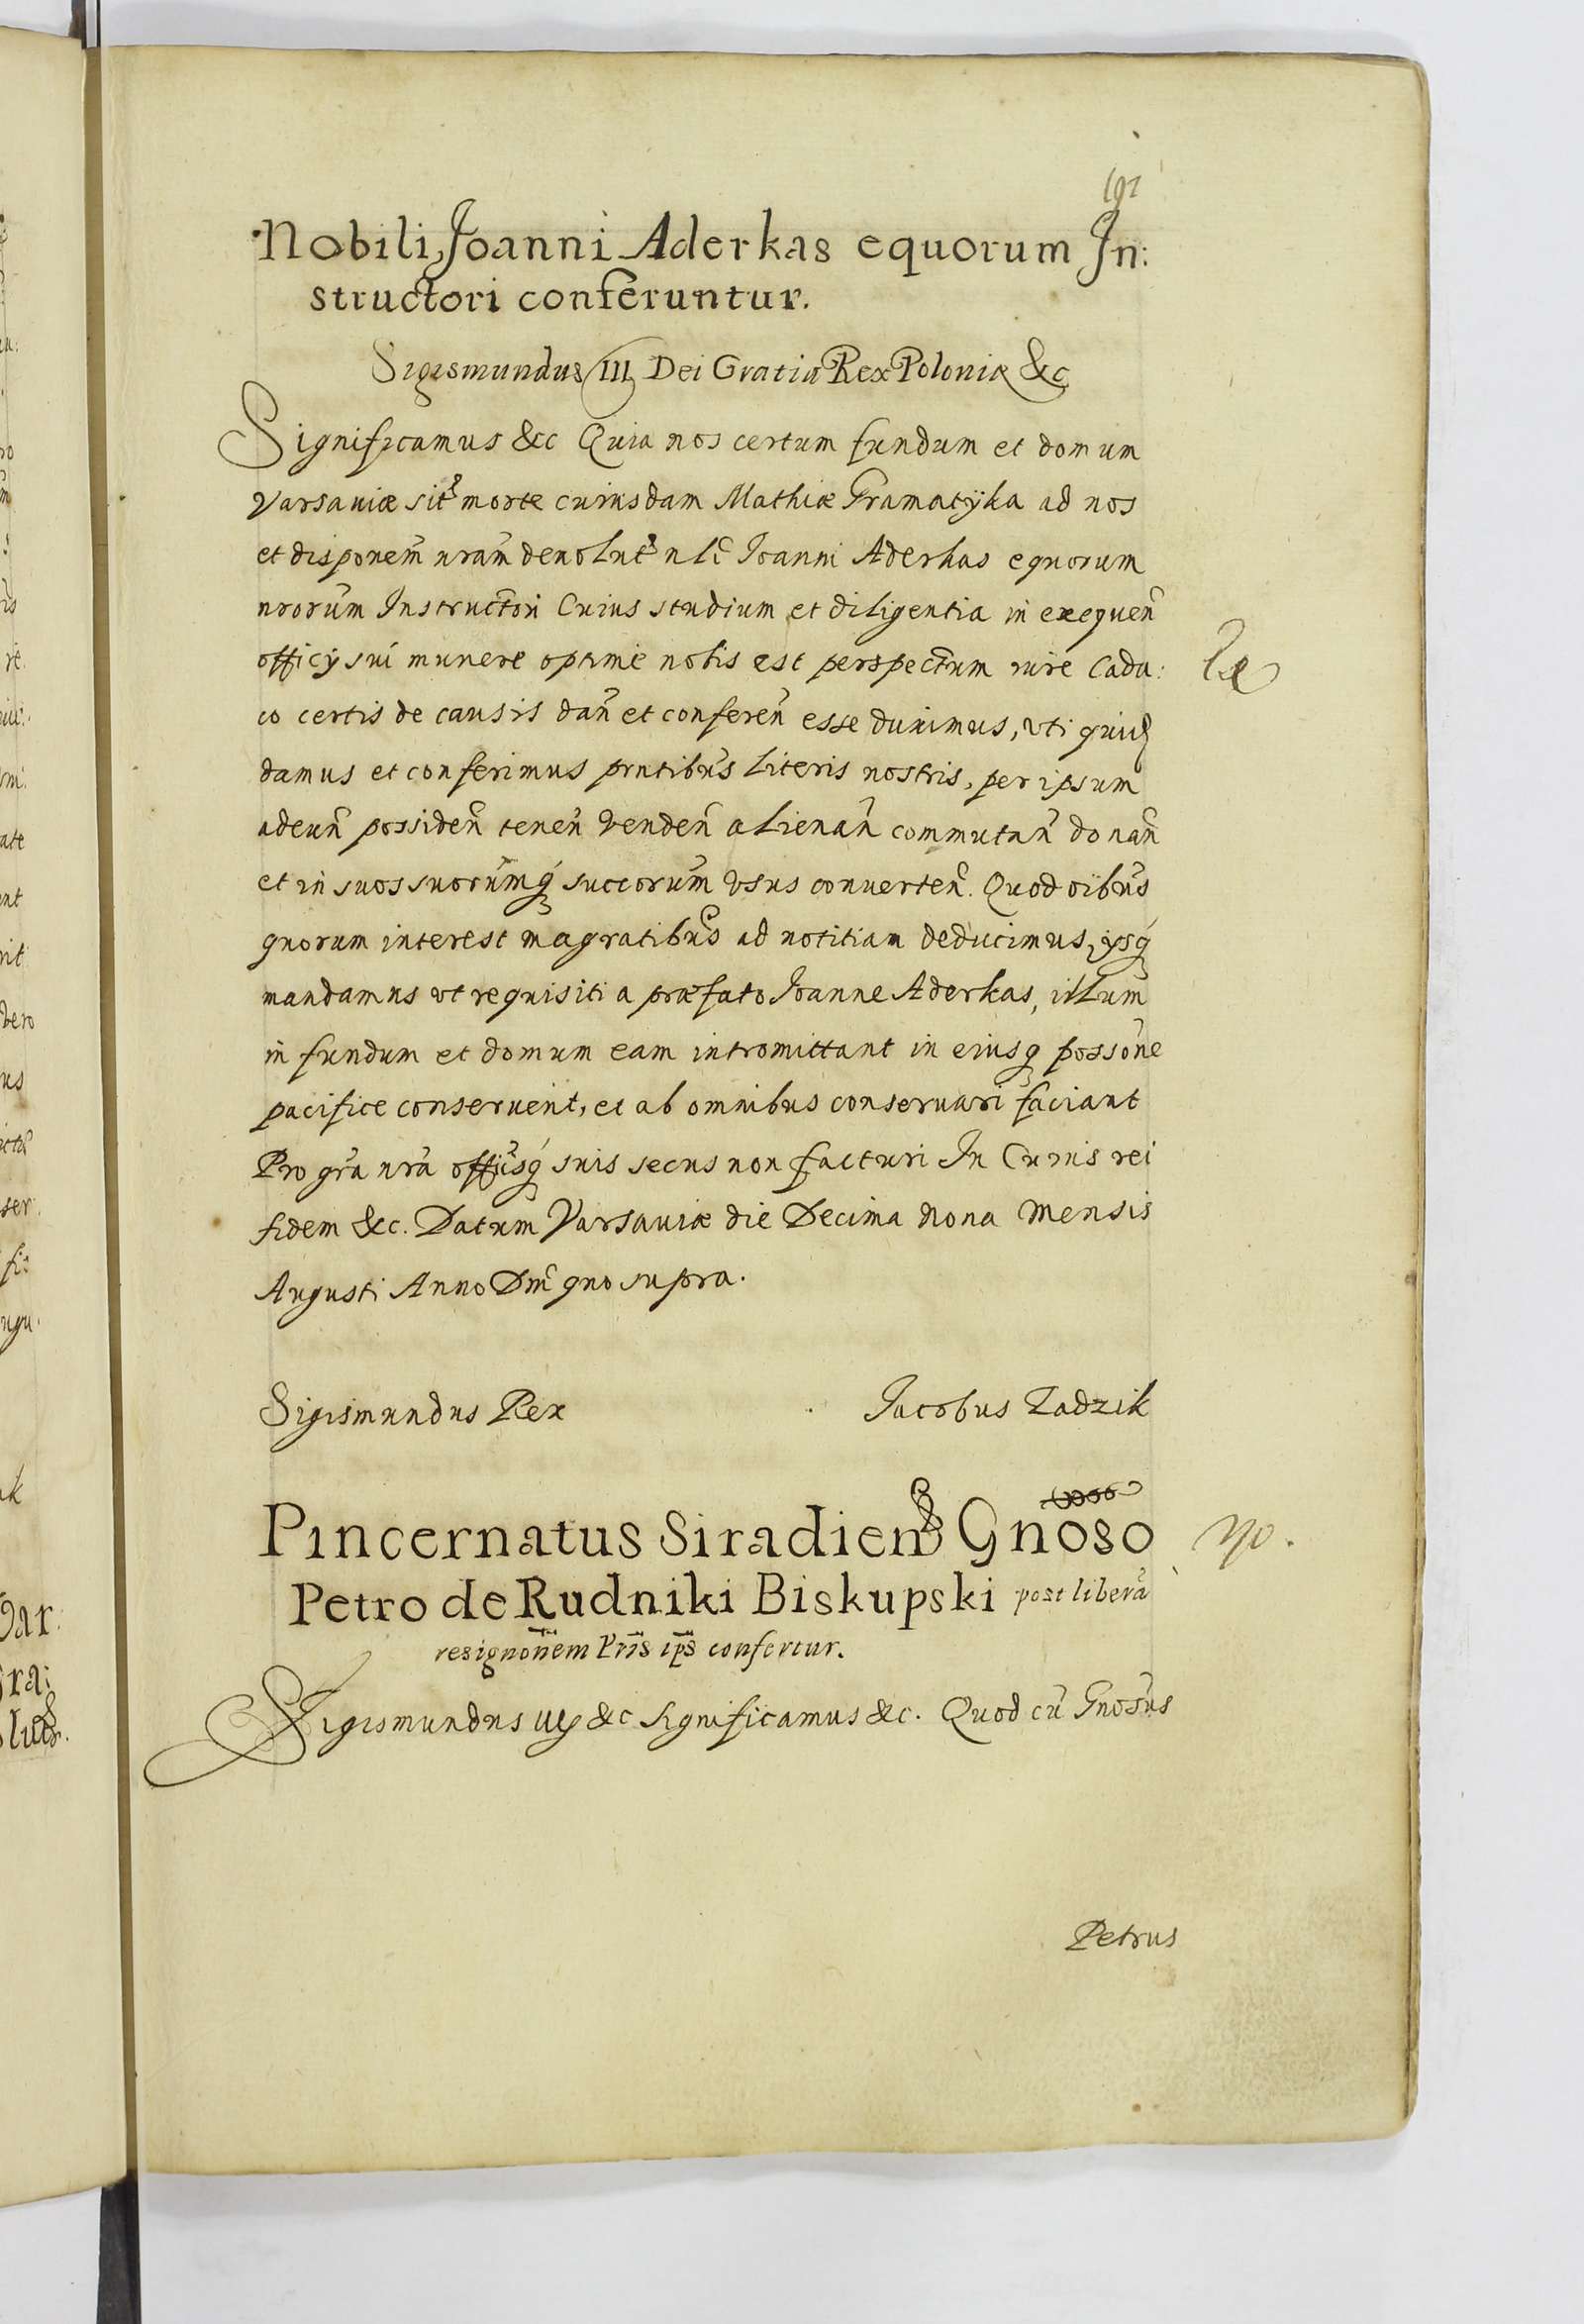 191
Nobili Joanni Aderkas equorum In:
structori conferuntur.
Sigismundus III Dei Gratia Rex Poloniæ &c
Significamus &c Quia nos certum fundum et domum
Varsaviæ sit morte cuiusdam Mathiæ Gramatÿka ad nos
et disponem̃ nram̃ devolut nli Joanni Aderkas equorum
nrorum̃ Instructori Cuius studium et diligentia in exequeñ
officÿ sui munere optime nobis est perspectum iure Cadu:
co certis de causis dañ et confereñ esse duximus, vti quidẽ
damus et conferimus prntibus̃ literis nostris, per ipsum
adeuñ possideñ teneñ vendeñ alienañ commutañ donañ
et in suos suorum̃q́ succorum̃ vsus converteñ. Quod oibus̃
quorum interest magratibus̃ ad notitiam deducimus, ÿsq́
mandamus vt requisiti a præfato Joanne Aderkas, illum̃
in fundum et domum eam intromittant in eiusq possõne
pacifice conservent, et ab omnibus conservari faciant
Pro gra̅ nra̅ officÿsq́ suis secus non facturi In Cuius rei
fidem &c. Datum Varsaviæ die Decima Nona Mensis
Augusti Anno Dm̃ quo supra.
Sigismundus Rex Jacobus Zadzik
Pincernatus Siradieñs Gnoso
Petro de Rudniki Biskupski post libera̅
resignon̅em Pri̅s ips̅ confertur.
Sigismundus III &c Significamus &c. Quod cu̅ Gnosus̃
Petrus